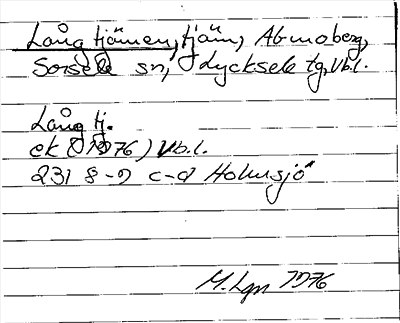 Långtjärnen, tjärn, Abmoberg,
Sorsele sn, Lycksele tg, Vb.l.
Långtj.
ek (1976) Vb.l.
231 8-9 c-d Holmsjö
M.Lgn 1976